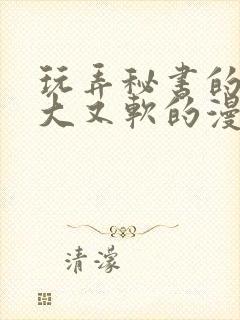 玩弄秘书的
大又软的漫
清濛